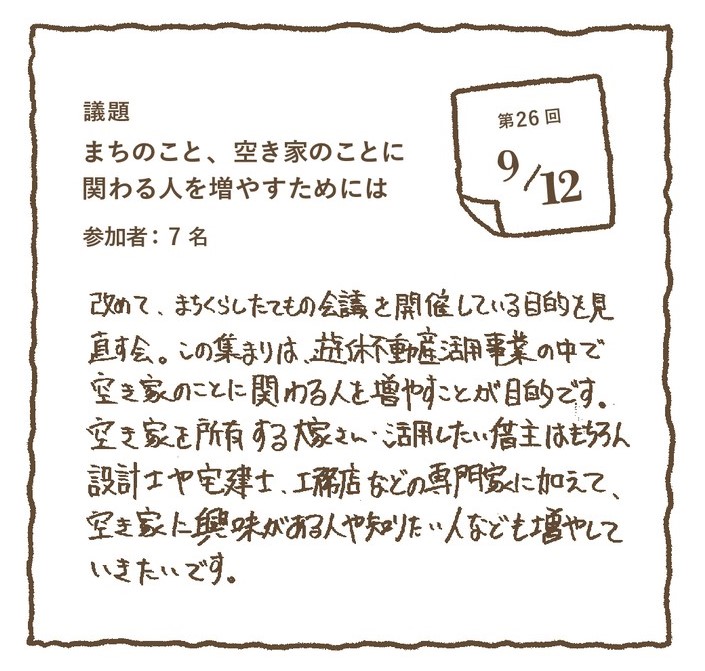 議題
まちのこと、空き家のことに
関わる人を増やすためには
参加者：7名
第26回
9/12
改めて、まちくらしたてもの会議を開催している目的を見
直す会。この集まりは、遊休不動産活用事業の中で
空き家のことに関わる人を増やすことが目的です。
空き家を所有する大家さん・活用したい借主はもちろん
設計士や宅建士、工務店などの専門家に加えて、
空き家に興味がある人や知りたい人なども増やして
いきたいです。